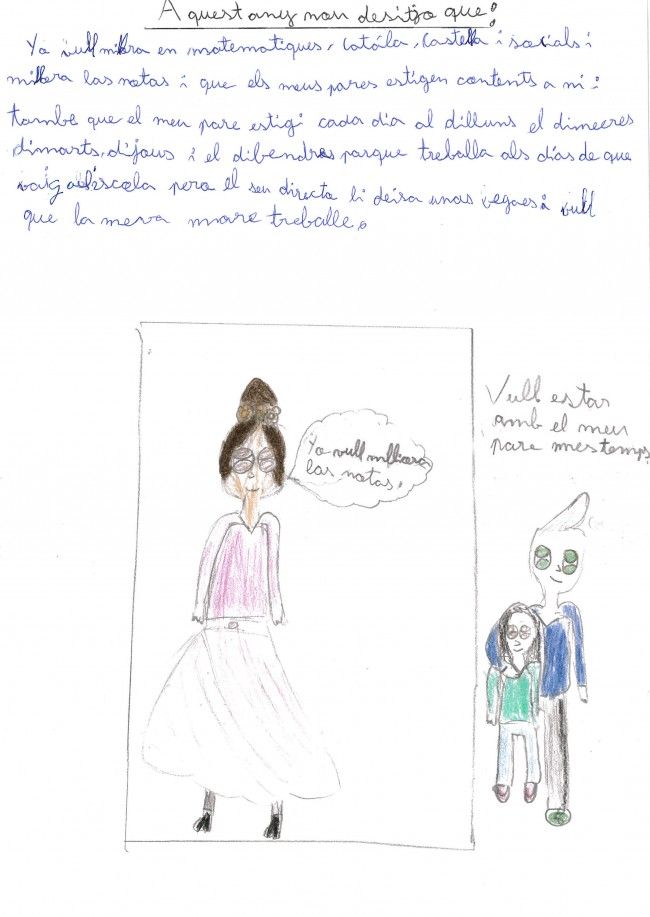 Aquest any nou desitjo que!
Yo vull millora en matematiques, Catála, Castellá i socials i
millora las notas i que els meus pares estigen contents a mi i
tambe que el meu pare estigi cada dia al dilluns el dimecres
dimarts, dijous i el dibendras parque treballa als días de que
vaig a l'iscola pero el seu directa li deixa unas vegaes i vull
que la meva mare treballe.
Yo vull milliora
las notas.
Vull estar
amb el meu
pare mes temps